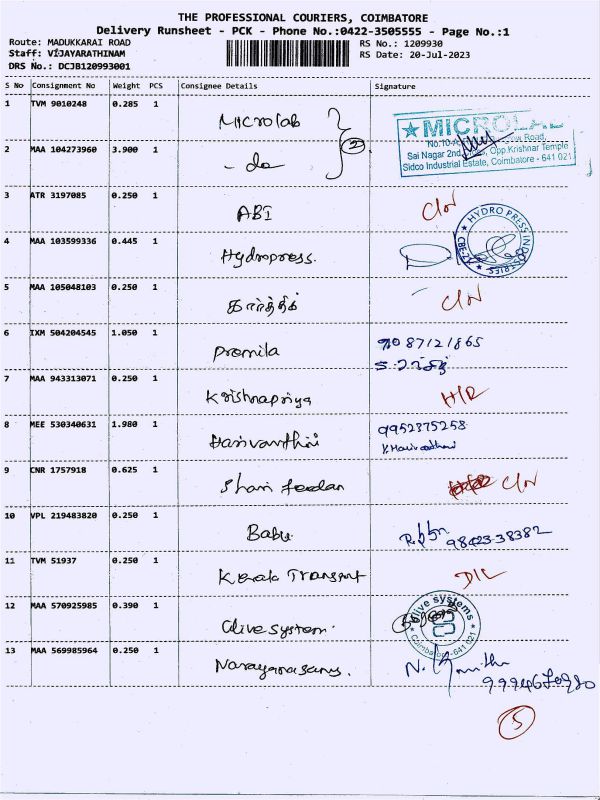 THE PROFESSIONAL COURIERS, COIMBATORE
Delivery Runsheet - PCK - Phone No.:0422-3505555 - Page No.:1
Route: MADUKKARAI ROAD RS No.: 1209930
Staff: VIJAYARATHINAM RS Date: 20-Jul-2023
DRS No.: DCJB120993001
S No Consignment No Weight PCS Consignee Details Signature
1 TVM 9010248 0.285 1 Microlab
MICROLAB
Sai Nagar 2nd Opp.Krishnar Temple
Sidco Industrial Estate, Coimbatore - 641 021
2 MAA 104273960 3.900 1 - do 2
3 ATR 3197085 0.250 1 ABI C/N
4 MAA 103599336 0.445 1 Hydropress.
HYDRO PRESS INDUSTRIES
5 MAA 105048103 0.250 1 கார்த்திக் C/N
6 IXM 504204545 1.050 1 Promila
7 MAA 943313071 0.250 1 Krishnapriya
8 MEE 530340631 1.980 1 Harivarthini 9952375258
9 CNR 1757918 0.625 1 C/N
10 VPL 219483820 0.250 1 Babu 98423-38382
11 TVM 51937 0.250 1 Kerala Transport D/L
12 MAA 570925985 0.390 1 Olive system.
Olive systems
Coimbatore-641 021
13 MAA 569985964 0.250 1 Narayanasamy.
5